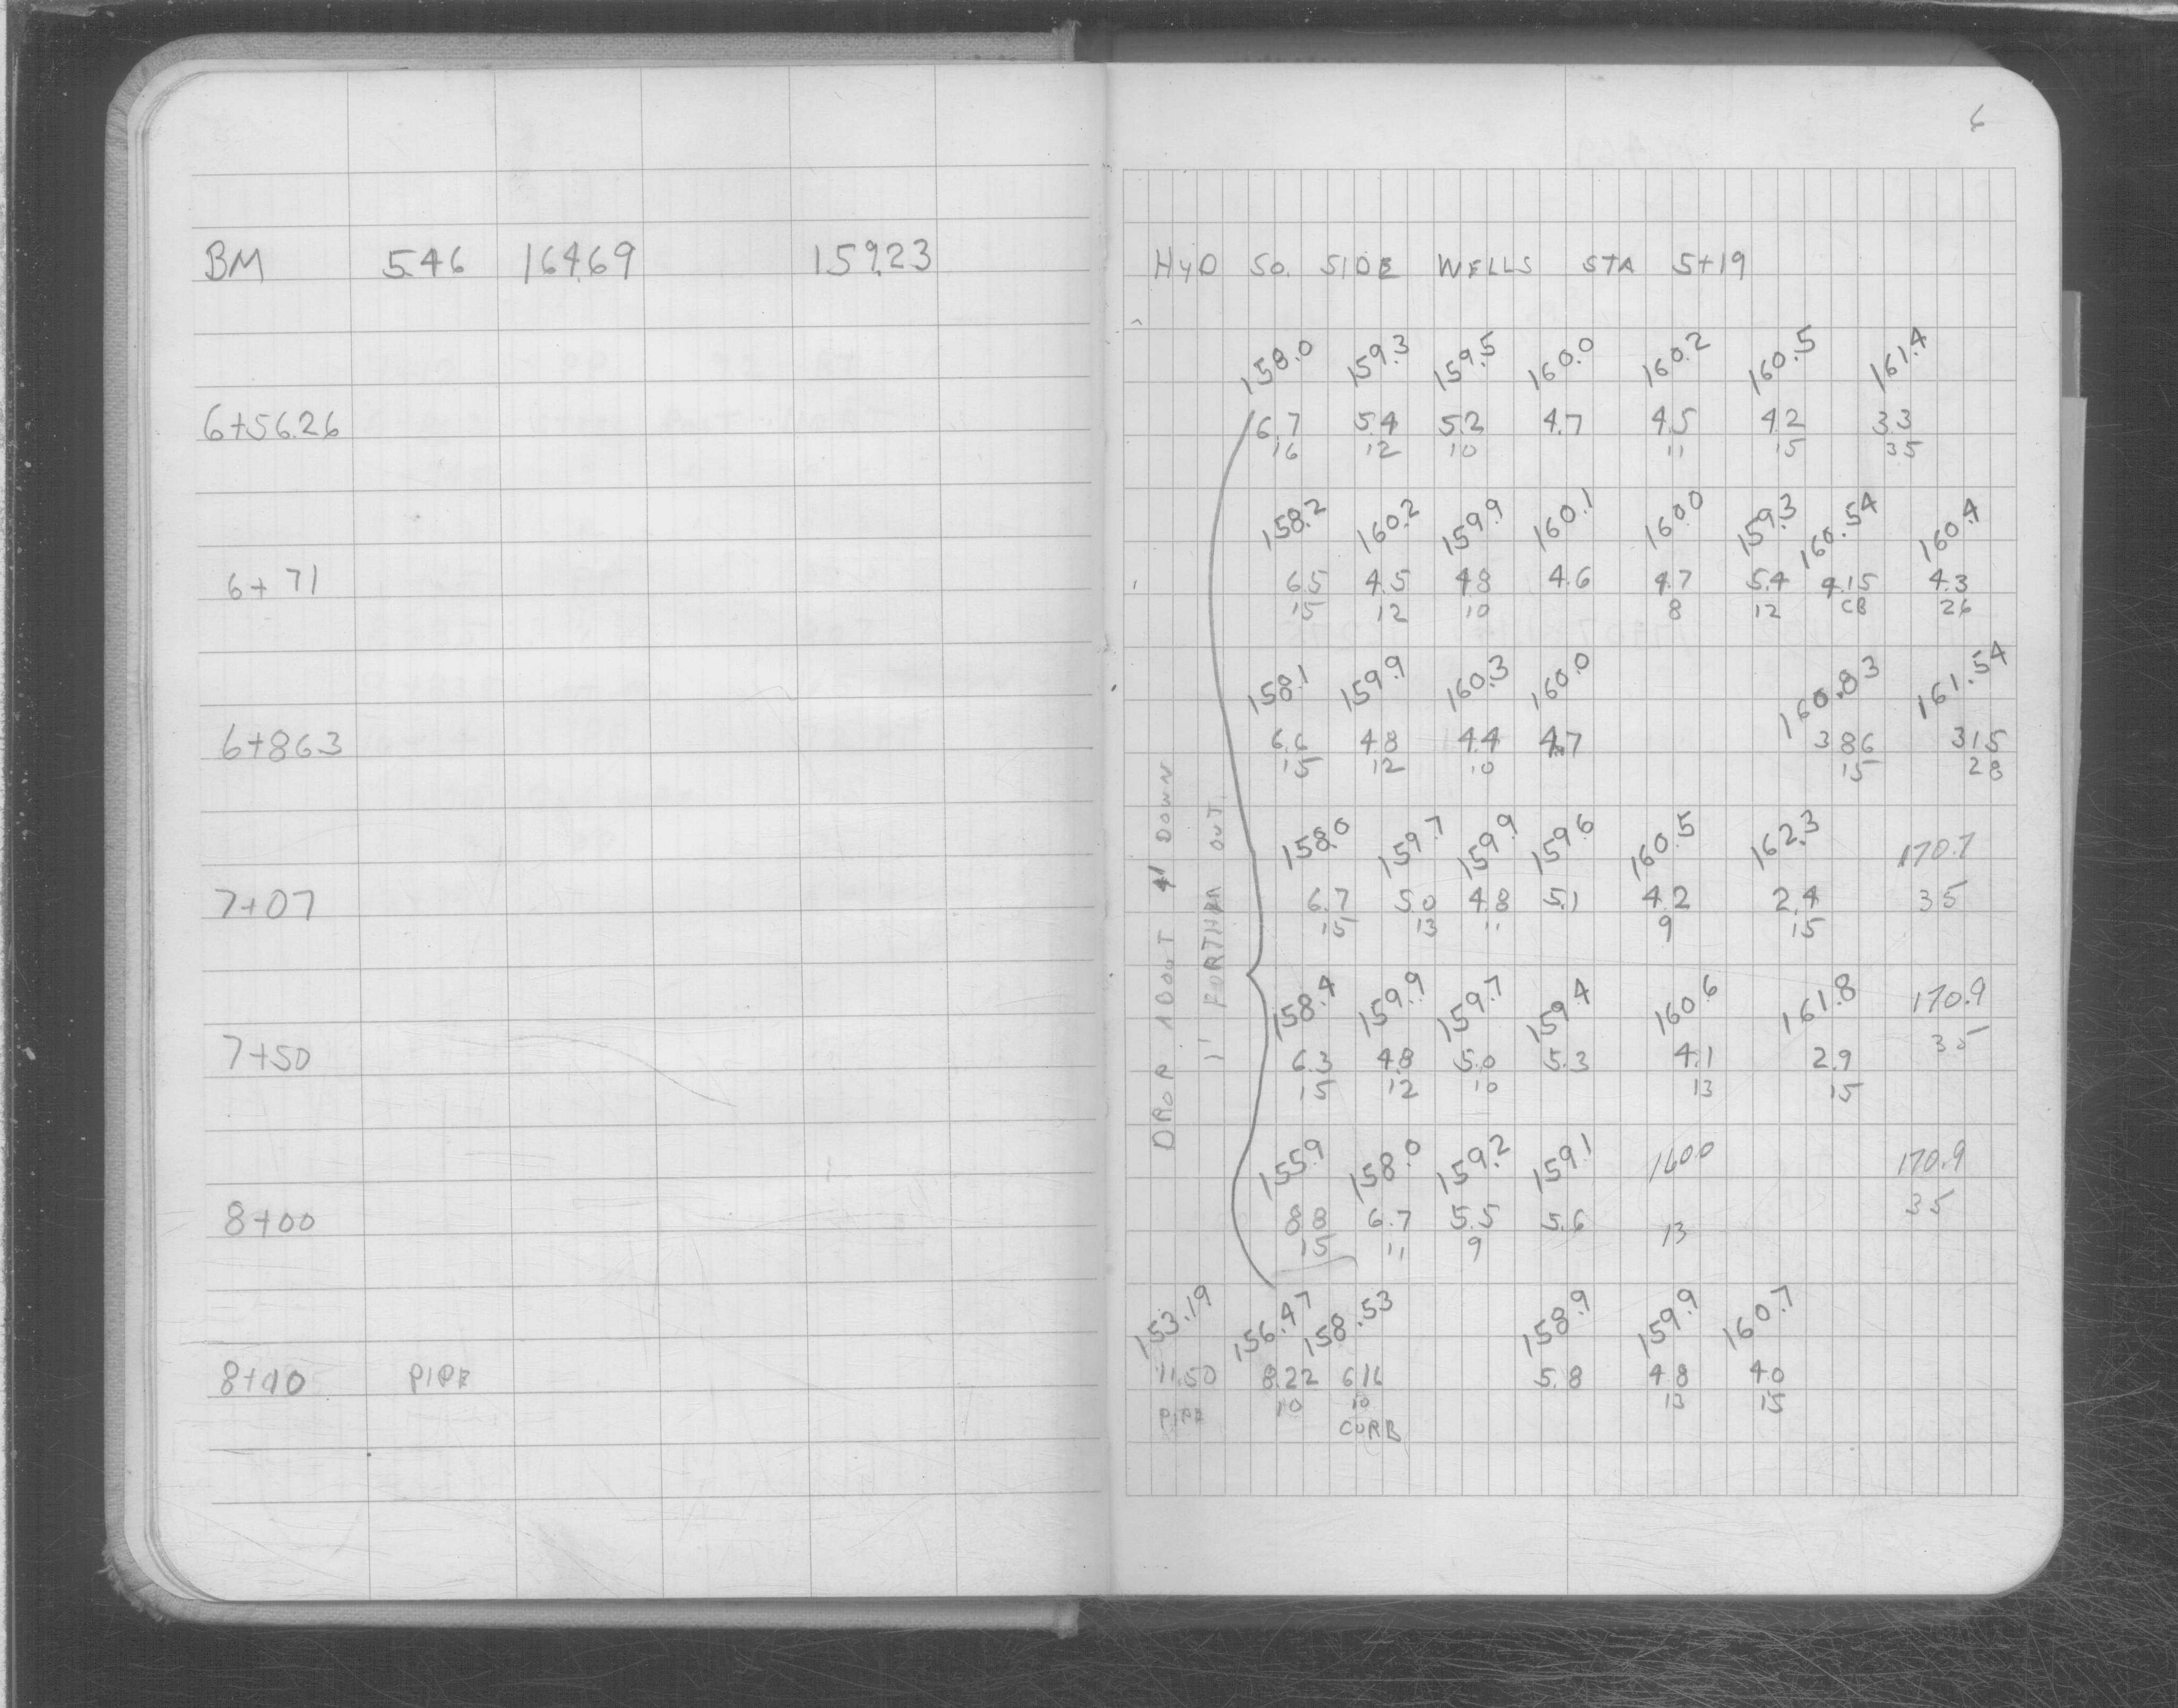 6
BM 5.46 164.69 159.23 HYD SO. SIDE WELLS STA 5+19
158.0 159.3 159.5 160.0 160.2 160.5 161.4
6+56.26 6.7 5.4 5.2 4.7 4.5 4.2 3.3
16 12 10 11 15 35
158.2 160.2 159.9 160.1 160.0 159.3 160.54 160.4
6+71 6.5 4.5 4.8 4.6 4.7 5.4 4.15 4.3
15 12 10 8 12 CB 26
158.1 159.9 160.3 160.0 160.83 161.54
6+86.3 6.6 4.8 4.4 4.7 3.86 3.15
15 12 10 15 28
158.0 159.7 159.9 159.6 160.5 162.3 170.7
7+07 6.7 5.0 4.8 5.1 4.2 2.4 35
15 13 11 9 15
158.4 159.9 159.7 159.4 160.6 161.8 170.9
7+50 6.3 4.8 5.0 5.3 4.1 2.9 35
15 12 10 13 15
155.9 158.0 159.2 159.1 160.0 170.9
8+00 8.8 6.7 5.5 5.6 35
15 11 9 13
153.19 156.47 158.53 158.9 159.9 160.7
8+10 PIPE 11.50 8.22 6.16 5.8 4.8 4.0
PIPE 10 10 13 15
CURB
DROP ABOUT 4' DOWN
1' FORTHER OUT